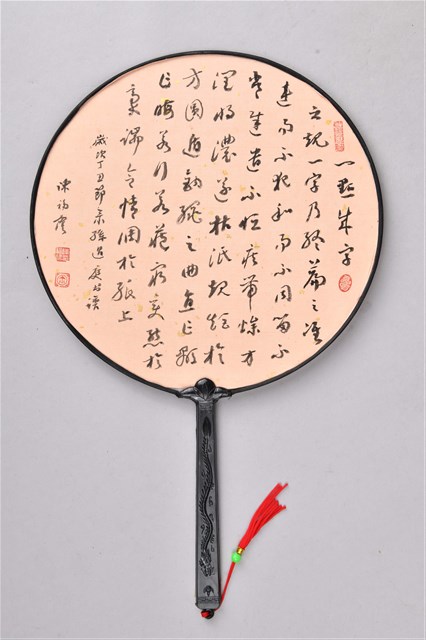 一點成字
之規一字乃終篇之准
違而不犯和而不同留不
常遲遣不恒疾帶燥方
潤將濃遂枯泯規矩於
方圓遁鉤繩之曲直乍顯
乍晦若行若藏窮變態於
毫端合情調於紙上
歲次丁丑節录孫過庭書譜
陳